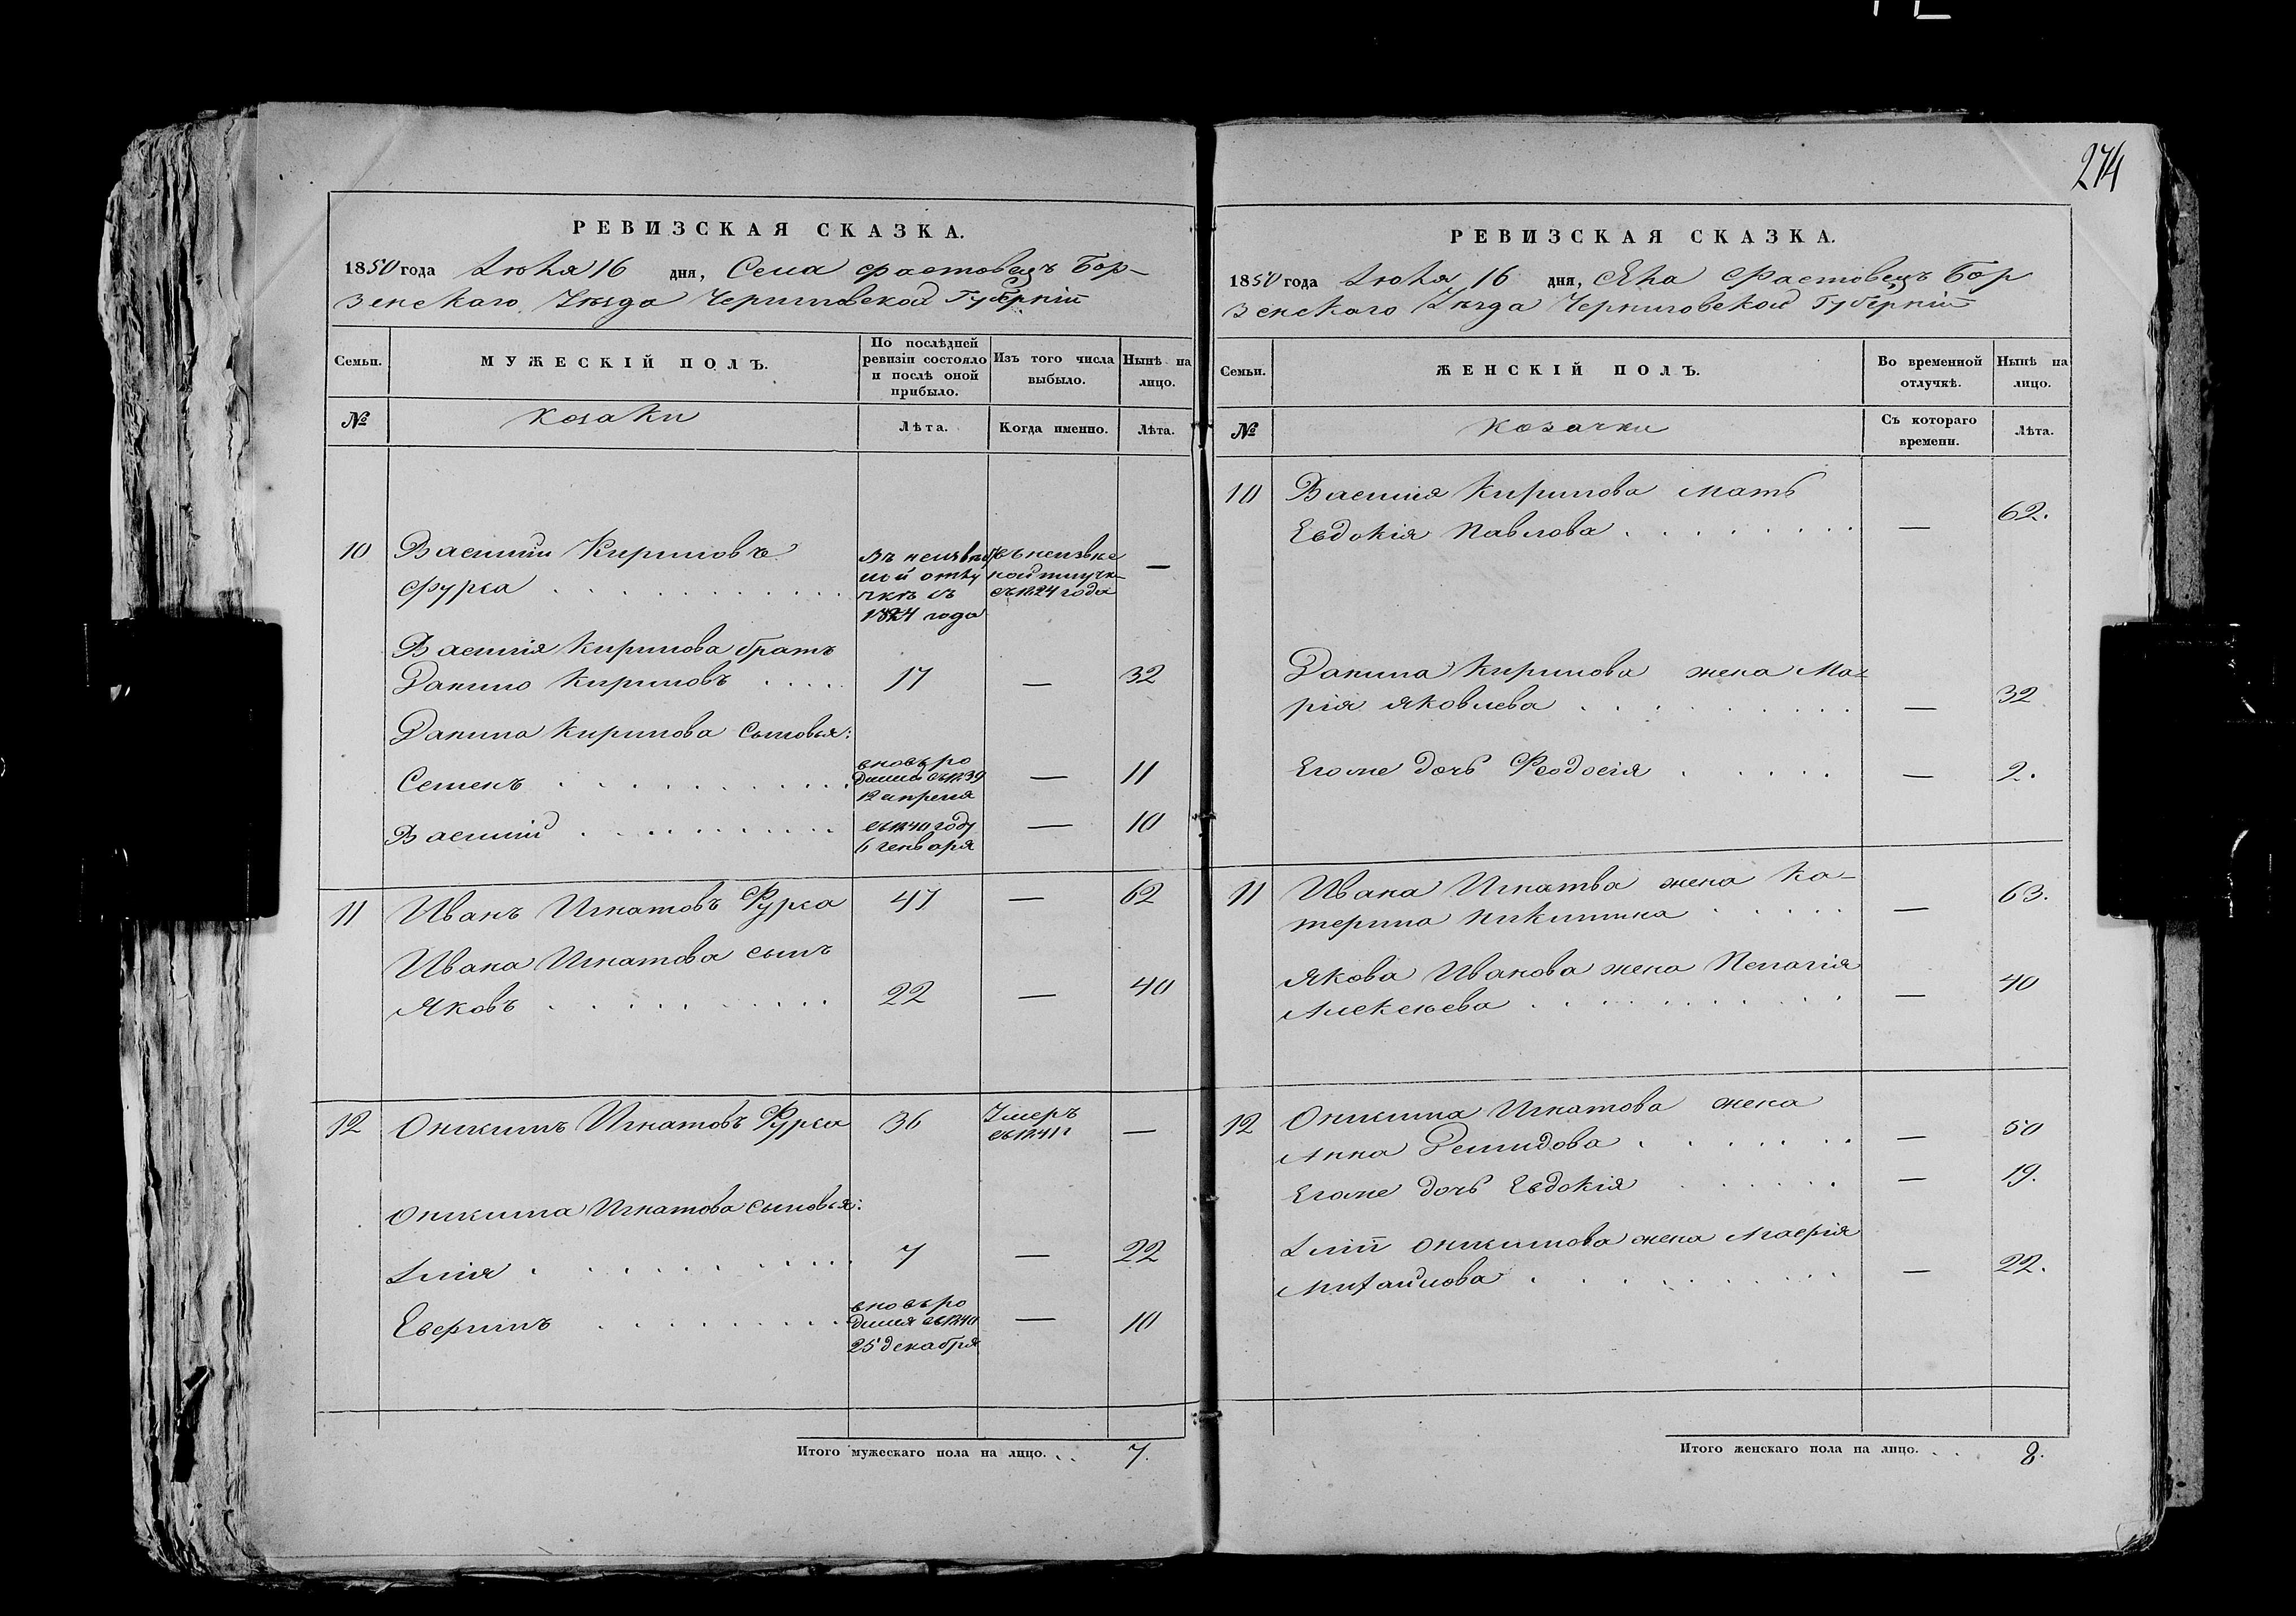 274
РЕВИЗСКАЯ СКАЗКА.
1850 года Іюня 16 дня, Села Фастовецъ Бор-
зенскаго Уезда Черниговской Губерніи
Семьи.
МУЖЕСКІЙ ПОЛЪ.
По послѣдней ревизіи состояло и послѣ оной прибыло.
Изъ того числа выбыло.
Нынѣ на лицо.
№
Козаки
Лѣта.
Когда именно.
Лѣта.
10 Василий Кириловъ
Фурса
въ неизвест
ной отлу
чкѣ съ
1824 года
въ неизвес
ной отлучк
съ 1824 года
—
Василія Кирилова братъ
Данило Кириловъ 17 — 32
Данила Кирилова сыновья:
Семенъ
вновь ро
дился въ 1839
12 апреля
— 11
Василий
въ 1840 году
6 генваря
— 10
11 Иванъ Игнатовъ Фурса 47 — 62
Ивана Игнатова сынъ
Яковъ 22 — 40
12 Оникимъ Игнатовъ Фурса 36
Умеръ
въ 1841 г
—
Оникима Игнатова сыновья:
Ілія 7 — 22
Еверинъ
вновь ро
дился въ 1840
25 декабря
— 10
Итого мужескаго пола на лицо. 7.
РЕВИЗСКАЯ СКАЗКА.
1850 года Іюня 16 дня, Села Фастовецъ Бор
зенскаго Уезда Черниговской Губерніи
Семьи.
ЖЕНСКІЙ ПОЛЪ.
Во временной отлучкѣ.
Нынѣ на лицо.
№
Козачки
Съ котораго времени.
Лѣта.
10 Василія Кирилова мать
Евдокія Павлова — 62.
Данила Кирилова жена Ма-
рія Яковлева — 32
Его же дочь Феодосія — 2.
11 Ивана Игнатва жена Ка-
терина Никитина — 63.
Якова Иванова жена Пелагія
Алексеева — 40
12 Оникима Игнатова жена
Анна Демидова — 50
Его же дочь Евдокія — 19.
Іліи Оникимова жена Марфія
Михайлова — 22.
Итого женскаго пола на лицо. 8.